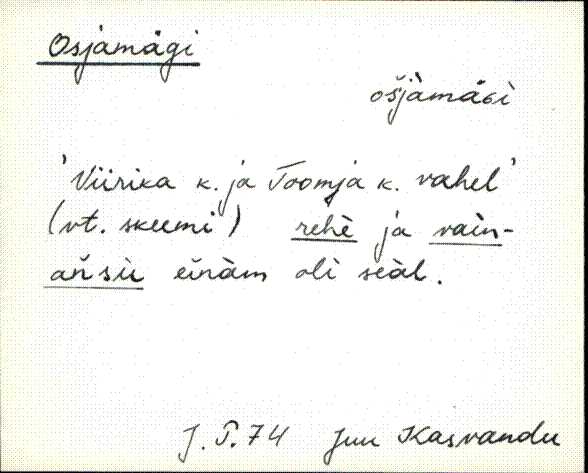 Osjamägi
ošjàmäɢi
'Viirika k. ja Toomja k. vahel'
(vt. skeemi) rehè ja vain-
añsiì eìnàm oli seàl.
J. T. 74 Juu Kasvandu